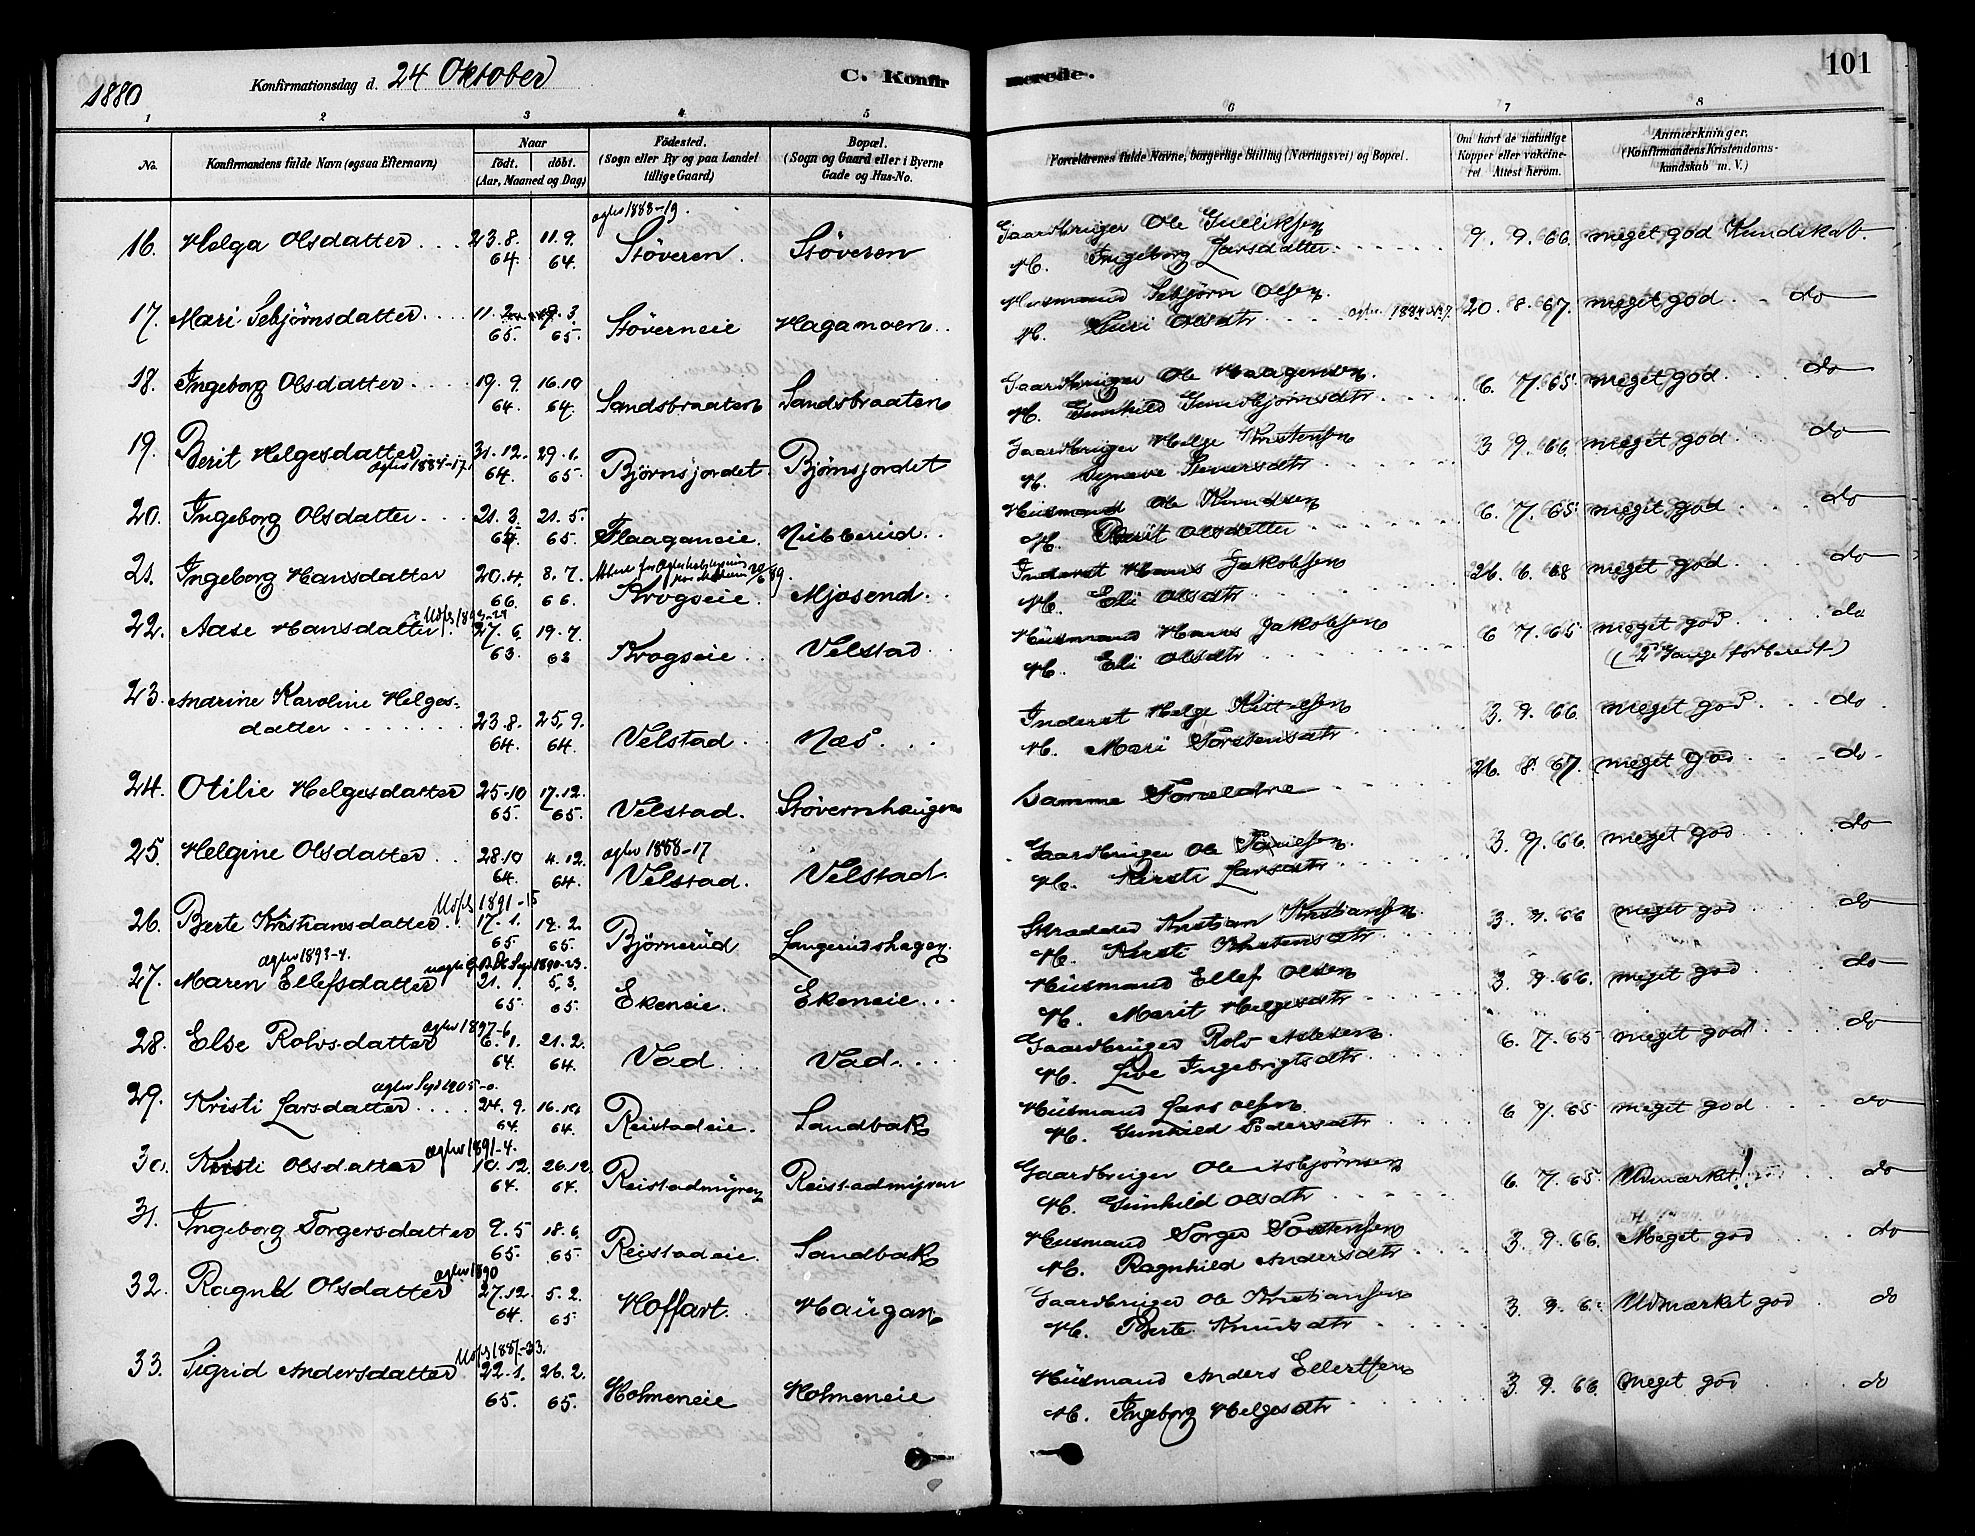 1880
Konfirmationsdag d. 24 Oktober
C. Konfirmerede.
101
1 2 3 4 5 6 7 8
No.
Konfirmandens fulde Navn (ogsaa Efternavn)
Naar
født. døbt.
(Aar, Maaned og Dag)
Fødested.
(Sogn eller By og paa Landet
tillige Gaard)
Bopæl.
(Sogn og Gaard eller i Byerne
Gade og Hus-No.
Forældrenes fulde Navne, borgerlige Stilling (Næringsvei) og Bopæl.
Om havt de naturlige
Kopper eller vakcine-
ret. Attest herom.
Anmærkninger.
(Konfirmandens Kristendoms-
kundskab m. V.)
agbs 1883-19.
16. Helga Olsdatter 23.8. 11.9. Støveren Støveren Gaardbruger Ole Gulliksen 9. 9. 66. meget god Kundskab.
64. 64. H. Ingeborg Larsdatter
17. Mari Sebjørnsdatter 11. 2. 19. 3. Støverneie Haganoen Husmand Sebjørn Olsen 20. 8. 67. meget god do
65. 65. H. Guri Olsdtr
18. Ingeborg Olsdatter 19. 9. 16.10 Sandsbraaten Sandsbraaten Gaardbruger Ole Haagensen 6. 7. 65. meget god do
64. 64. H. Gunhild Gundbjørnsdtr
19. Berit Helgesdatter 31. 12. 29. 1. Bjørnsjordet Bjørnsjordet Gaardbruger Helge Kristensen 3. 9. 66. meget god do
agbs 1884-17. 64. 65. H. Syneve Iversdtr
20. Ingeborg Olsdatter 21. 3. 21. 5. Flaaganeie. Nibberud Husmand Ole Knudsen 6. 7. 65. meget god do
65. H. Berit Olsdatter
21. Ingeborg Hansdatter 20. 4. 8. 7. Krogseie. Mjøsend Inderst Hans Jakobsen 26. 6. 68 meget god do
66. 66. H. Eli Olsdtr
22. Aase Hansdatter 27. 6. 19. 7. Krogseie Velstad Husmand Hans Jakobsen 6. 7. 65 meget god do
63. 63 H. Eli Olsdtr (2 Gange forberedt)
23. Andrine Karoline Helges-
datter 23.8. 25.9. Velstad Næs Inderst Helge Kittelsen 3. 9. 66. meget god do
64. 64. H. Mari Torstensdtr
24. Otilie Helgesdatter 25-10 17.12. Velstad. Støvernhaugen Samme Forældre 26. 8. 67. meget god do
65. 65.
25. Helgine Olsdatter 28.10 4.12. agbs 1888-17 Velstad. Velstad Gaardbruger Ole 3. 9. 66. meget god do
64. 64. H. Kirsti Larsdtr
26. Berte Kristiansdatter 17. 1. 12. 2. Bjørnerud Langerudshagen Skrædder Kristian Kristiansen 3. 9. 66 meget god do
65. 65. H. Kirsti Kristensdtr
agbs 1893-4.
27. Maren Ellefsdatter 21. 1. 5. 3. Ekeneie. Ekeneie Husmand Ellef Olsen 3. 9. 66. meget god do
65. 65. H. Marit Helgesdtr
agbs 1897-6.
28. Else Rolvsdatter 6. 1. 21. 2. Vad Vad Gaardbruger Rolv Aslesen 6. 7. 65 meget god do
64. 64. H. Live Ingebrigtsdtr
29. Kristi Larsdatter 24. 9. 16.10 Reistadeie. Sandbak Husmand Lars Olsen 6. 7. 65 meget god do
64. 64. H. Gunhild Pedersdtr
agbs 1891-4.
30. Kristi Olsdatter 10. 12. 26.12. Reistadmyren Reistadmyren Gaardbruger Ole Asbjørnsen 6. 7. 65. Udmærket! do
64. 64. H. Gunhild Olsdtr
31. Ingeborg Torgersdatter 9. 5 18. 6. Reistadeie. Sandbak Husmand Torger Torstensen 3. 9. 66. Meget god do
65. 65. H. Ragnhild Andersdtr
agbs 1890
32. Ragnhl Olsdatter 27.12. 5. 2. Hoffart. Haugan Gaardbruger Ole Kristiansen 3. 9. Udmærket god do
64. 65. H. Berte Knudsdtr
33. Sigrid Andersdatter 22.1. 26.2. Holmeneie Holmeneie Husmand Anders Ellertsen 3. 9. 66. meget god do
65. 65. H. Ingeborg Helgesdtr